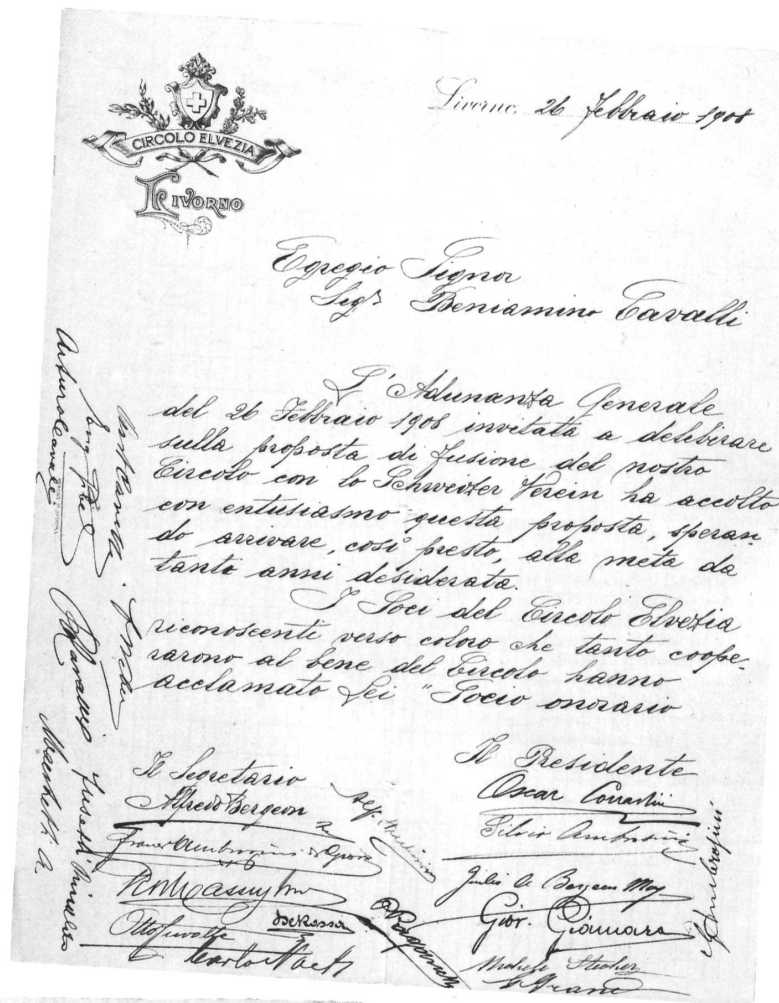 CIRCOLO ELVEZIA
LIVORNO
Livorno, 26 Febbraio 1908
Egregio Signor
Sigr Beniamino Cavalli
L'Adunanza Generale
del 26 Febbraio 1908 invitata a delibirare
sulla proposta di fusione del nostro
Circolo con lo Schweizer Verein ha accolto
con entusiasmo questa proposta, speran
do arrivare, così presto, alla meta da
tanto anni desiderata.
I Soci del Circolo Elvezia
riconoscenti verso coloro che tanto coope-
rarono al bene del Circolo hanno
acclamato Lei "Socio onorario
Il Segretario
Alfredo Bergeon
Il Presidente
Oscar
Silvio Ambrosini
Giov. Giannara
Michele
Carlo
Otto
Arturo Cavalli
Machetti A.
Ambrosini